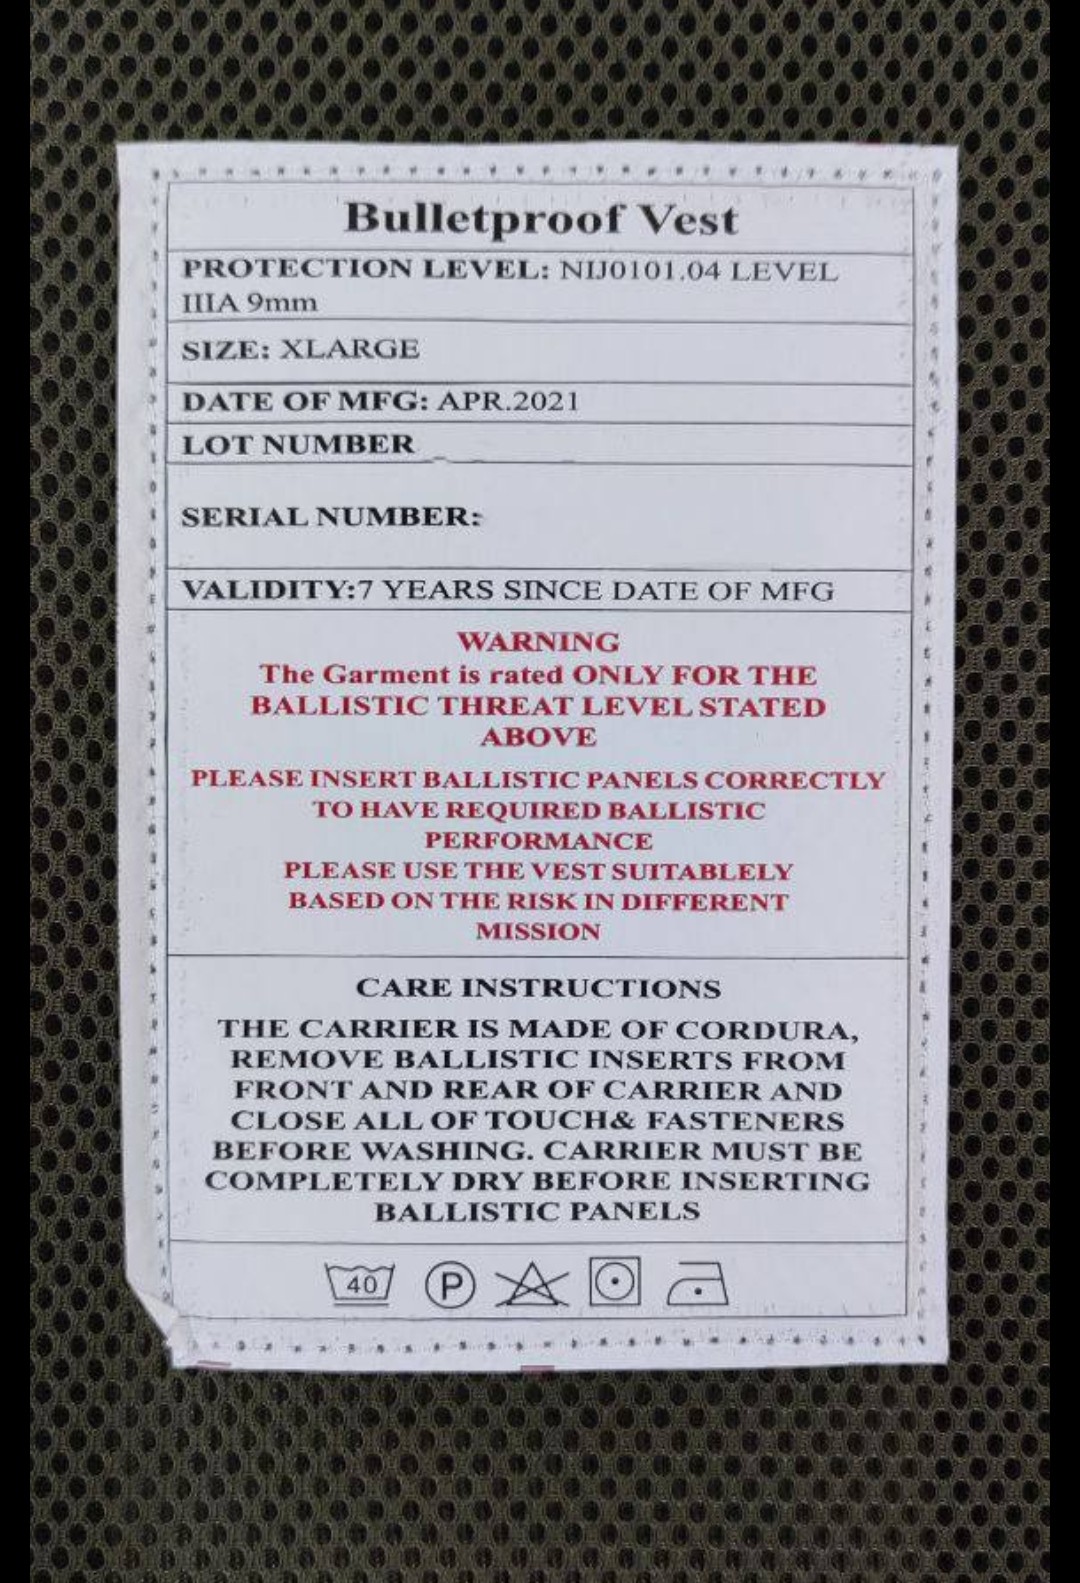 Bulletproof Vest
PROTECTION LEVEL: NIJ0101.04 LEVEL
IIIA 9mm
SIZE: XLARGE
DATE OF MFG: APR.2021
LOT NUMBER
SERIAL NUMBER:
VALIDITY:7 YEARS SINCE DATE OF MFG
WARNING
The Garment is rated ONLY FOR THE
BALLISTIC THREAT LEVEL STATED
ABOVE
PLEASE INSERT BALLISTIC PANELS CORRECTLY
TO HAVE REQUIRED BALLISTIC
PERFORMANCE
PLEASE USE THE VEST SUITABLELY
BASED ON THE RISK IN DIFFERENT
MISSION
CARE INSTRUCTIONS
THE CARRIER IS MADE OF CORDURA,
REMOVE BALLISTIC INSERTS FROM
FRONT AND REAR OF CARRIER AND
CLOSE ALL OF TOUCH& FASTENERS
BEFORE WASHING. CARRIER MUST BE
COMPLETELY DRY BEFORE INSERTING
BALLISTIC PANELS
40 P